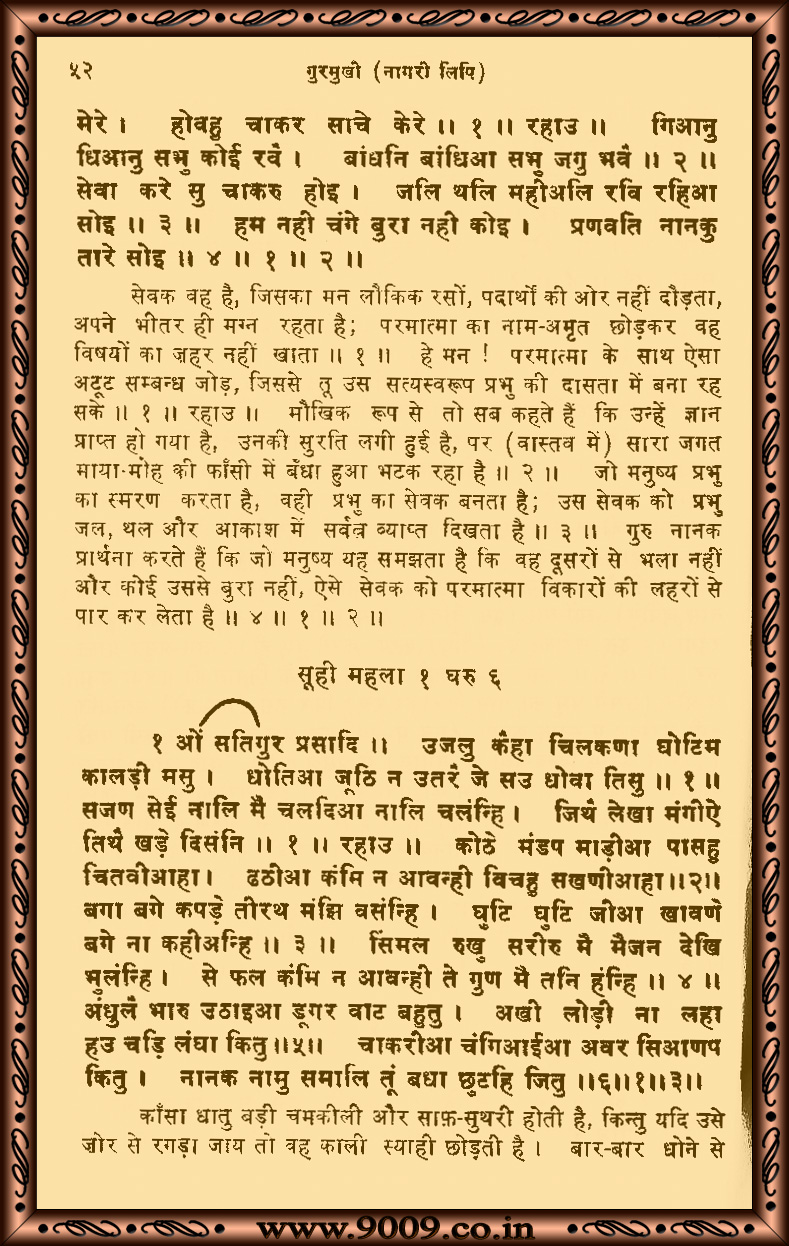 ५२ गुरमुखी (नागरी लिपि)
मेरे । होवहु चाकर साचे केरे ॥ १ ॥ रहाउ ॥ गिआनु
धिआनु सभु कोई रवै । बांधनि बांधिआ सभु जगु भवै ॥ २ ॥
सेवा करे सु चाकरु होइ । जलि थलि महीअलि रवि रहिआ
सोइ ॥ ३ ॥ हम नही चंगे बुरा नही कोइ । प्रणवति नानकु
तारे सोइ ॥ ४ ॥ १ ॥ २ ॥
सेवक वह है, जिसका मन लौकिक रसों, पदार्थों की ओर नहीं दौड़ता,
अपने भीतर ही मग्न रहता है; परमात्मा का नाम-अमृत छोड़कर वह
विषयों का ज़हर नहीं खाता ॥ १ ॥ हे मन ! परमात्मा के साथ ऐसा
अटूट सम्बन्ध जोड़, जिससे तू उस सत्यस्वरूप प्रभु की दासता में बना रह
सके ॥ १ ॥ रहाउ ॥ मौखिक रूप से तो सब कहते हैं कि उन्हें ज्ञान
प्राप्त हो गया है, उनकी सुरति लगी हुई है, पर (वास्तव में) सारा जगत
माया-मोह की फाँसी में बँधा हुआ भटक रहा है ॥ २ ॥ जो मनुष्य प्रभु
का स्मरण करता है, वही प्रभु का सेवक बनता है; उस सेवक को प्रभु
जल, थल और आकाश में सर्वत्र व्याप्त दिखता है ॥ ३ ॥ गुरु नानक
प्रार्थना करते हैं कि जो मनुष्य यह समझता है कि वह दूसरों से भला नहीं
और कोई उससे बुरा नहीं, ऐसे सेवक को परमात्मा विकारों की लहरों से
पार कर लेता है ॥ ४ ॥ १ ॥ २ ॥
सूही महला १ घरु ६
१ ओं सतिगुर प्रसादि ॥ उजलु कैहा चिलकणा घोटिम
कालड़ी मसु । धोतिआ जूठि न उतरै जे सउ धोवा तिसु ॥ १ ॥
सजण सेई नालि मै चलदिआ नालि चलंन्हि । जिथै लेखा मंगीऐ
तिथै खड़े दिसंनि ॥ १ ॥ रहाउ ॥ कोठे मंडप माड़ीआ पासहु
चितवीआहा । ढठीआ कंमि न आवन्ही विचहु सखणीआहा ॥२॥
बगा बगे कपड़े तीरथ मंझि वसंन्हि । घुटि घुटि जीआ खावणे
बगे ना कहीअन्हि ॥ ३ ॥ सिंमल रुखु सरीरु मै मैजन देखि
भुलंन्हि । से फल कंमि न आवन्ही ते गुण मै तनि हंन्हि ॥ ४ ॥
अंधुलै भारु उठाइआ डूगर वाट बहुतु । अखी लोड़ी ना लहा
हउ चड़ि लंघा कितु ॥५॥ चाकरीआ चंगिआईआ अवर सिआणप
कितु । नानक नामु समालि तूं बधा छुटहि जितु ॥६॥१॥३॥
काँसा धातु बड़ी चमकीली और साफ़-सुथरी होती है, किन्तु यदि उसे
ज़ोर से रगड़ा जाय तो वह काली स्याही छोड़ती है । बार-बार धोने से
www.9009.co.in